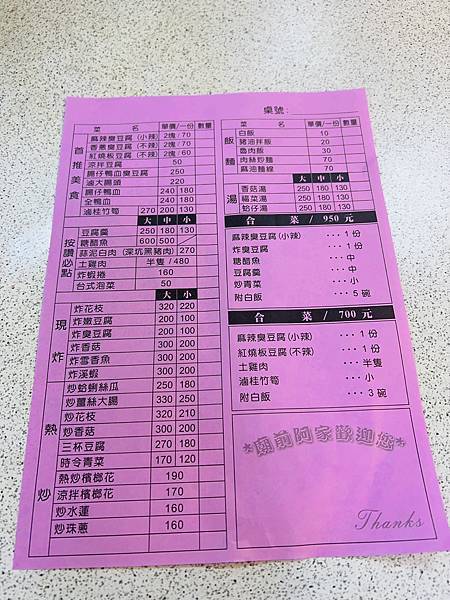 桌號：
菜 名 單價/一份 數量
首推美食
麻辣臭豆腐 (小辣) 2塊 / 70
香蔥臭豆腐 (不辣) 2塊 / 70
紅燒板豆腐 (不辣) 2塊 / 60
涼拌豆腐 50
腸仔鴨血臭豆腐 250
滷大腸頭 220
腸仔鴨血 240 180
全鴨血 240 180
滷桂竹筍 270 200 130
大 中 小
按讚必點
豆腐羹 250 180 130
糖醋魚 600 500
蒜泥白肉 (深坑黑豬肉) 270
土雞肉 半隻 / 480
炸蝦捲 160
台式泡菜 50
大 小
現炸
炸花枝 320 220
炸嫩豆腐 200 100
炸臭豆腐 200 100
炸香菇 300 200
炸雪香魚 300 200
炸溪蝦 300 200
熱炒
炒蛤蜊絲瓜 250 180
炒薑絲大腸 330 250
炒花枝 320 210
炒香菇 300 200
三杯豆腐 270 180
時令青菜 170 120
熱炒檳榔花 190
涼拌檳榔花 170
炒水蓮 160
炒珠蔥 160
菜 名 單價/一份 數量
飯麵
白飯 10
豬油拌飯 20
魯肉飯 30
肉絲炒麵 70
麻油麵線 70
大 中 小
湯
香菇湯 250 180 130
福菜湯 250 180 130
蛤仔湯 250 180 130
合 菜 / 950 元
麻辣臭豆腐(小辣) ･･･1 份
炸臭豆腐 ･･･1 份
糖醋魚 ･･･中
豆腐羹 ･･･中
炒青菜 ･･･小
附白飯 ･･･5 碗
合 菜 / 700 元
麻辣臭豆腐(小辣) ･･･1 份
紅燒板豆腐(不辣) ･･･1 份
土雞肉 ･･･半隻
滷桂竹筍 ･･･小
附白飯 ･･･3 碗
*廟前阿家歡迎您*
Thanks